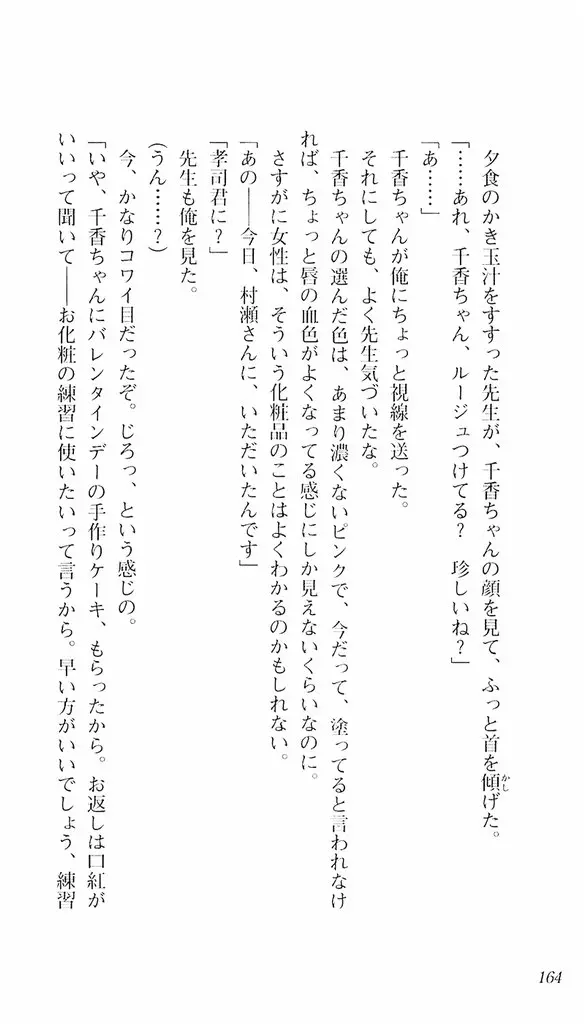 夕食のかき玉汁をすすった先生が、千香ちゃんの顔を見て、ふっと首を傾げた。
かし
「……あれ、千香ちゃん、ルージュつけてる？　珍しいね？」
「あ……」
千香ちゃんが俺にちょっと視線を送った。
それにしても、よく先生気づいたな。
千香ちゃんの選んだ色は、あまり濃くないピンクで、今だって、塗ってると言われなけ
れば、ちょっと唇の血色がよくなってる感じにしか見えないくらいなのに。
さすがに女性は、そういう化粧品のことはよくわかるのかもしれない。
「あの――今日、村瀬さんに、いただいたんです」
「孝司君に？」
先生も俺を見た。
(うん……？)
今、かなりコワイ目だったぞ。じろっ、という感じの。
「いや、千香ちゃんにバレンタインデーの手作りケーキ、もらったから。お返しは口紅が
いいって聞いて――お化粧の練習に使いたいって言うから。早い方がいいでしょう、練習
164